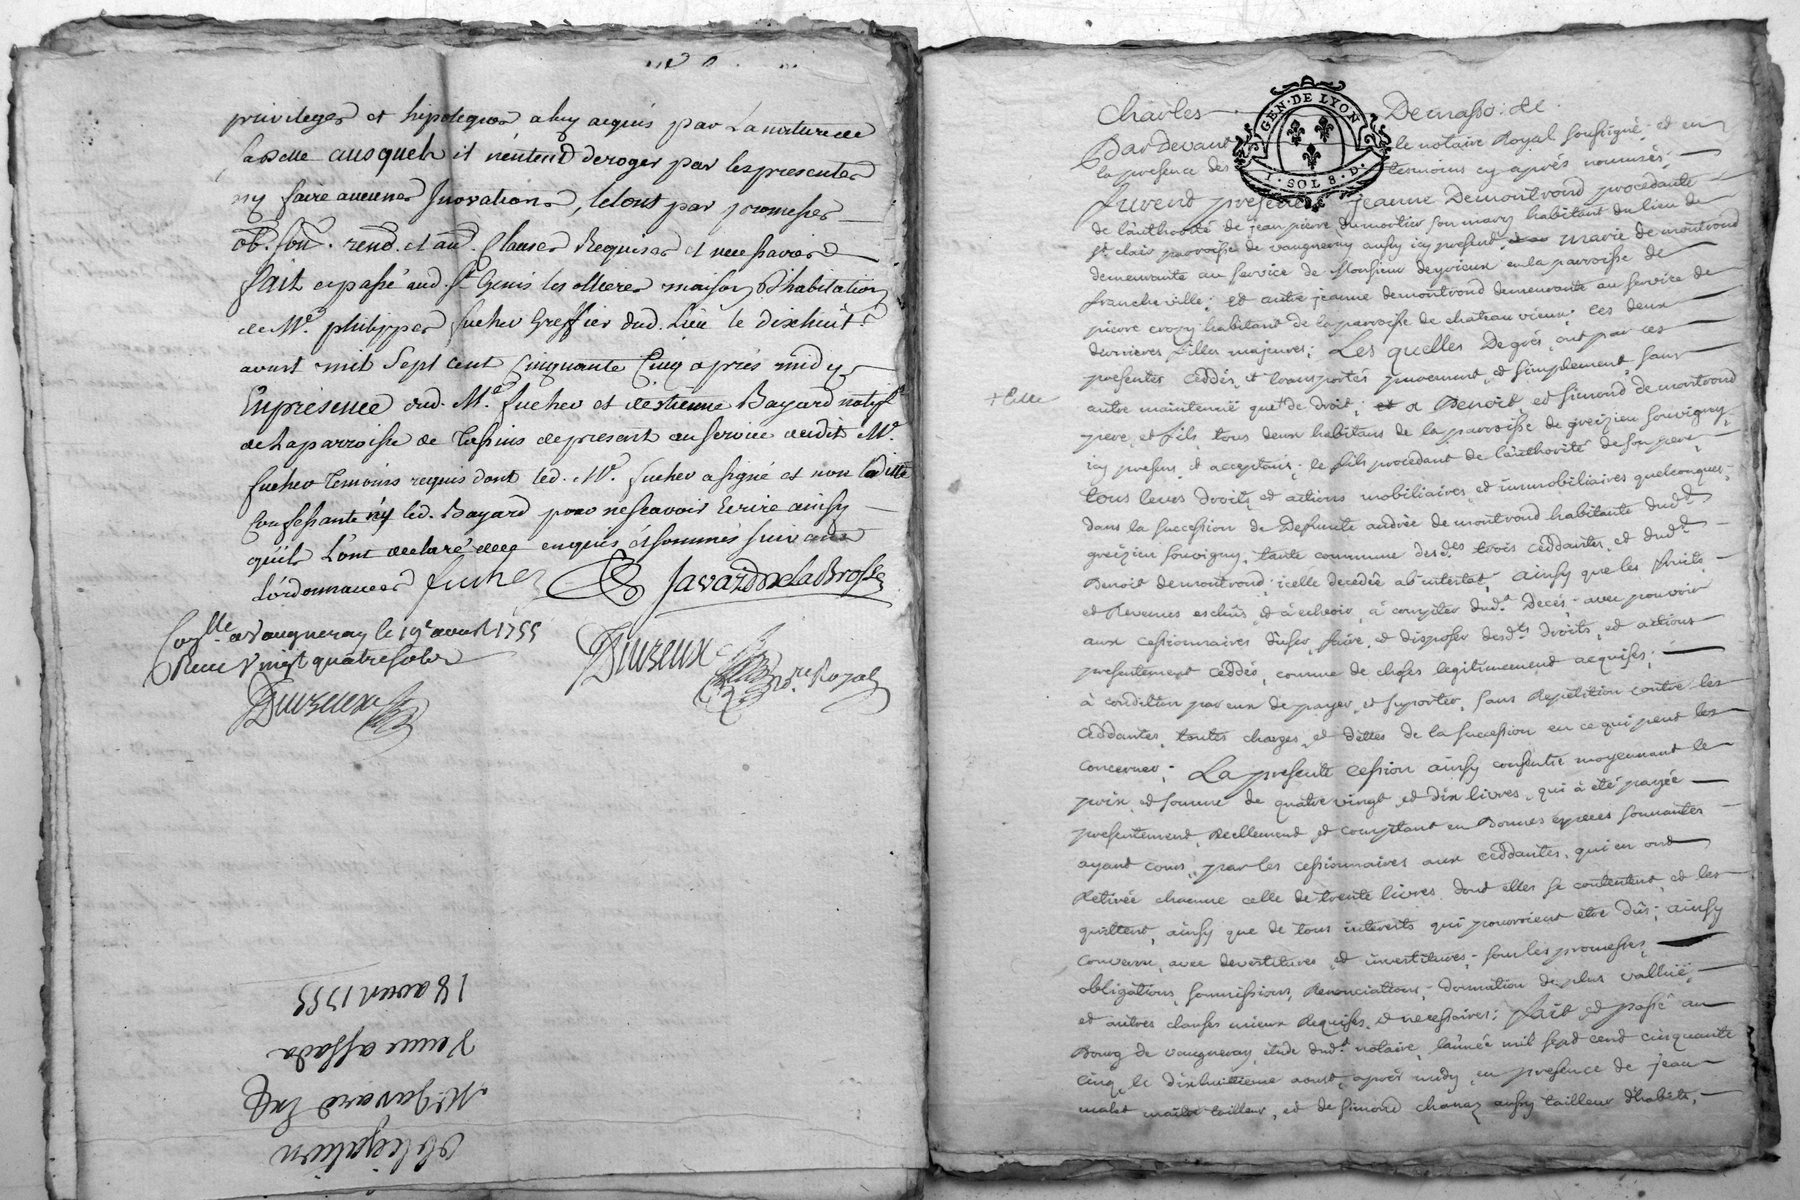 privileges et hipoteques a luy acquis par la nature de
la dette ausquels il n'entend deroger par les presentes
ny faire aucunes Inovations, le tout par promesses
ob. soum. renon. et au. clauses Requises et necessaires
fait et passé aud. St Genis les ollieres maison d'habitation
de Me. philippes fucher Greffier dud. Lieu le dixhuit
avant mil Sept cent Cinquante Cinq après midy
En présence dud. Me. fucher et de etienne Bayard natif
de la parroisse de Tassins de present au service dudit Me.
fucher temoins requis dont led. Me. fucher a signé et non la ditte
Confessante ny led. Bayard pour ne scavoir Ecrire ainsy
qu'ils L'ont declaré de ce enquis et sommés suivant
L'ordonnance fucher Javard de la Brosse
Conlle. a Vaugneray le 19e aoust 1755
Receu Vingt quatre sols
not.re Royal
18 aoust 1755
Obligation
GEN. DE LYON
1. SOL 8. D.
Charles Demasso: &c.
Pardevant le notaire Royal soussigné et en
la presence des temoins cy après nommés;
furent presents jeanne Demontrond procedante
de l'authorité de jean pierre dumortier son mary habitant du lieu de
St. clair parroisse de vaugneray aussy icy present, marie de montrond
demeurante au service de Monsieur deyrieux en la parroisse de
francheville; et autre jeanne demontrond demeurante au service de
pierre crozy habitant de la parroisse de chateau vieux; ces deux
dernieres filles majeures; Lesquelles De grés, ont par ces
presentes ceddés, et transportés purement, et simplement, sans
+ Celle
autre maintenüe que de droit, a Benoit et simond de montrond
pere, et fils, tous deux habitans de la parroisse de greizieu souvigny
icy presens, et acceptans; le fils procedant de l'authorité de son pere
tous leurs droits, et actions mobiliaires, et immobiliaires quelconques
dans la succession de Defunte andrée de montrond habitante dud.t
greizieu souvigny, tante commune desd.es trois ceddantes, et dud.t
Benoit demontrond; icelle decedée ab intestat, ainsy que les fruits
et Revenus eschus, et à echeoir, à compter dud.t Decès; avec pouvoir
aux cessionnaires d'user, faire, et disposer desd.ts droits, et actions
presentement ceddés, comme de choses legitimement acquises;
à condition par eux de payer, et suporter, sans Repetition contre les
ceddantes, toutes charges, et dettes de la succession en ce qui peut les
concerner; La presente cession ainsy consentie moyennant le
prix, et somme de quatre vingt, et dix livres, qui a été payée
presentement, Reellement, et comptant en Bonnes especes sonnantes
ayant cours, par les cessionnaires aux ceddantes, qui en ont
Retirée chacune celle de trente livres dont elles se contentent, et les
quittent, ainsy que de tous interests qui pourroient etre dûs; ainsy
convenu, avec devestitures, et investitures, sous les promesses,
obligations, soumissions, Renonciations, donnation de plus vallüe,
et autres clauses mieux Requises, et necessaires; fait et passé au
Bourg de vaugneray, etude dud.t notaire, l'année mil sept cent cinquante
cinq, le dixhuitieme aoust, après midy, en presence de jean
malet maitre tailleur, et de simond chanaz aussy tailleur d'habits,